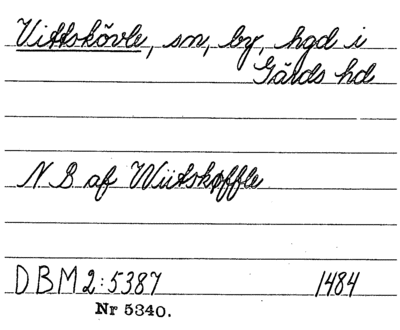 Vittskövle, sn, by, hgd i
Gärds hd
N B af Wiitskøffle
DBM 2:5387 1484
Nr 5340.